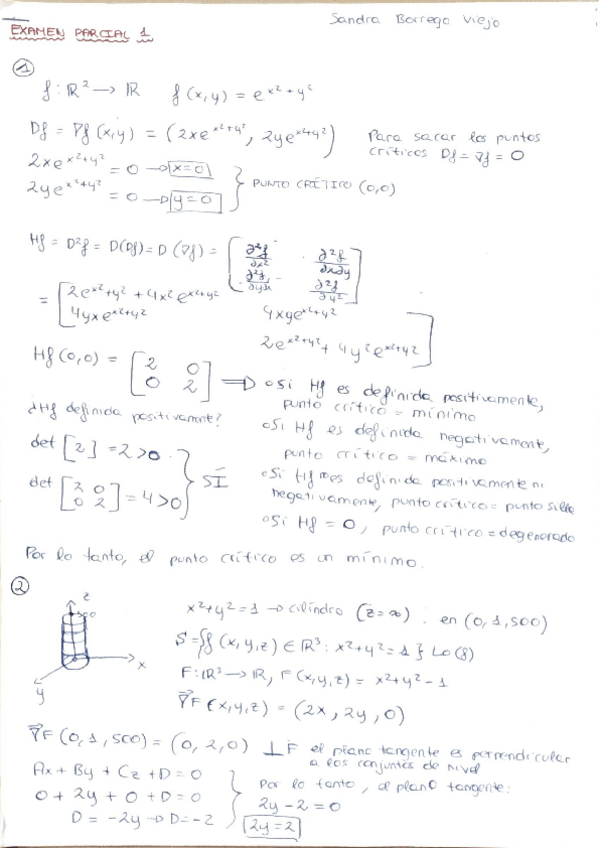 Sandra Borrego Viejo
EXAMEN PARCIAL 1
①
f: ℝ² → ℝ f(x,y) = e^(x²+y²)
Df = ∇f(x,y) = (2xe^(x²+y²), 2ye^(x²+y²)) Para sacar los puntos
críticos Df = ∇f = 0
2xe^(x²+y²) = 0 → x=0
2ye^(x²+y²) = 0 → y=0
} PUNTO CRÍTICO (0,0)
Hf = D²f = D(Df) = D(∇f) = [∂²f/∂x² ∂²f/∂x∂y
∂²f/∂y∂x ∂²f/∂y²]
= [2e^(x²+y²) + 4x²e^(x²+y²) 4xye^(x²+y²)
4yxe^(x²+y²) 2e^(x²+y²) + 4y²e^(x²+y²)]
Hf(0,0) = [2 0
0 2] ⇒ o Si Hf es definida positivamente,
punto crítico = mínimo
¿Hf definida positivamente?
o Si Hf es definida negativamente,
punto crítico = máximo
det [2] = 2>0
det [2 0
0 2] = 4>0
} SÍ
o Si Hf no es definida positivamente ni
negativamente, punto crítico = punto silla
o Si Hf = 0, punto crítico = degenerado
Por lo tanto, el punto crítico es un mínimo.
②
z
500
x
y
x²+y²=1 → cilindro (z=∞). en (0,1,500)
S = {(x,y,z) ∈ ℝ³: x²+y²=1}
F: ℝ³ → ℝ, F(x,y,z) = x²+y²-1
∇F(x,y,z) = (2x, 2y, 0)
∇F(0,1,500) = (0,2,0) ⊥ F el plano tangente es perpendicular
a los conjuntos de nivel
Ax + By + Cz + D = 0
0 + 2y + 0 + D = 0
D = -2y → D = -2
Por lo tanto, el plano tangente:
2y - 2 = 0
2y = 2